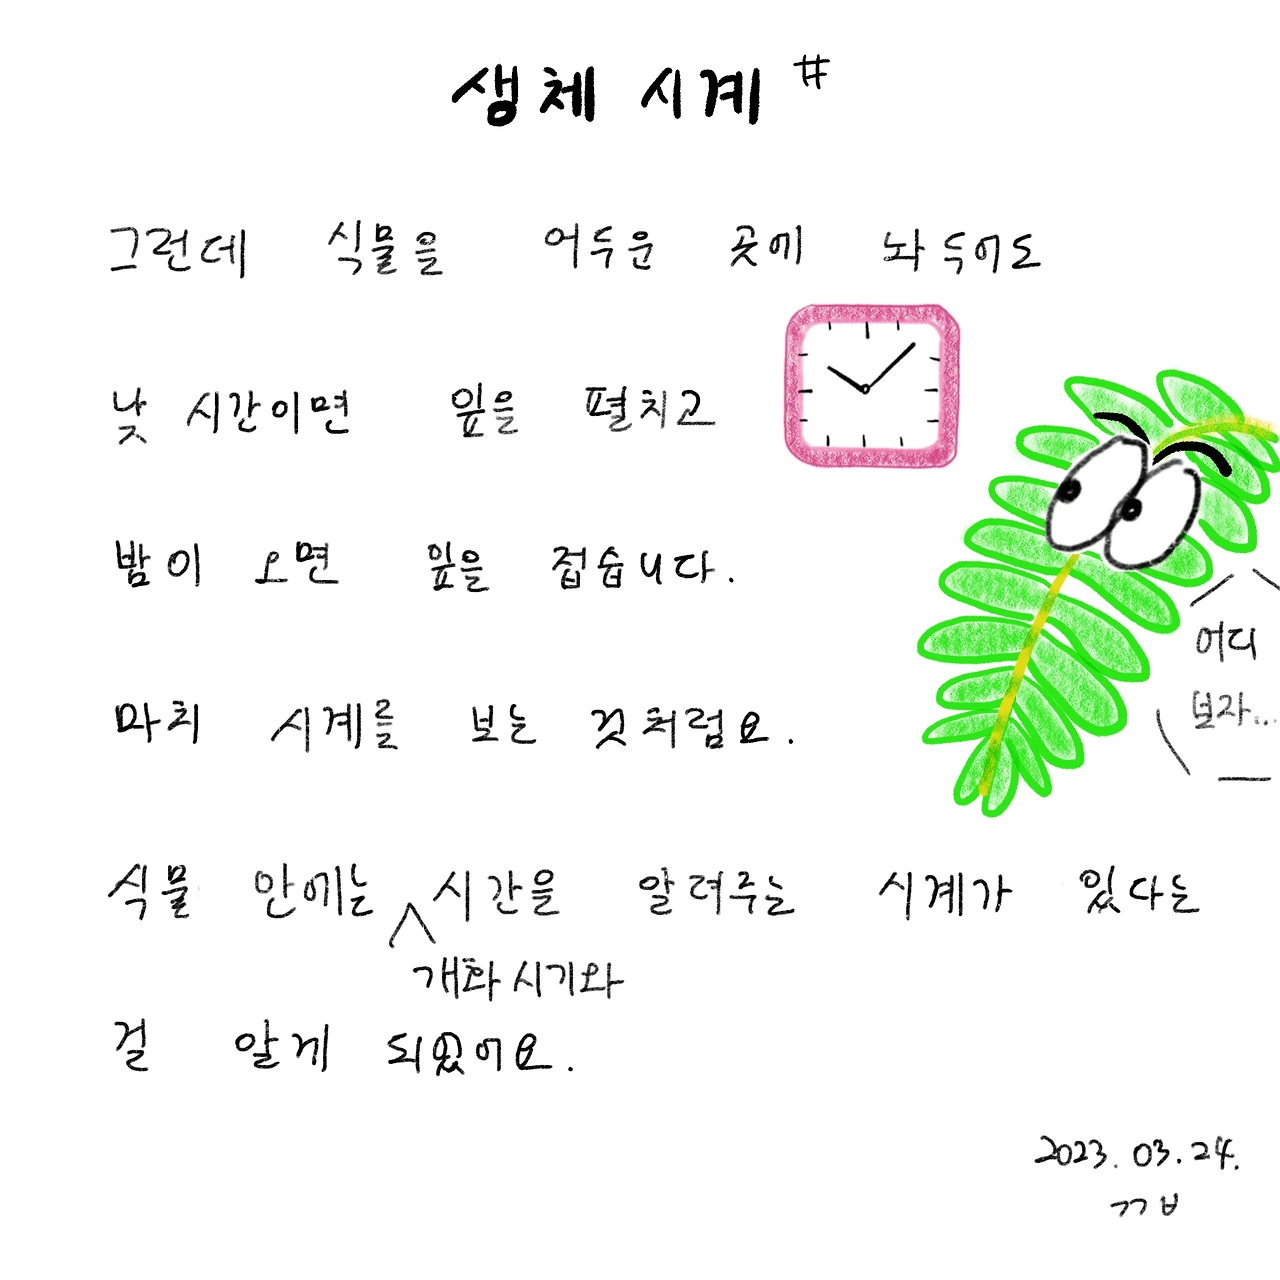 생체 시계 #
그런데 식물을 어두운 곳에 놔 두어도
낮 시간이면 잎을 펼치고
밤이 오면 잎을 접습니다.
어디
보자...
마치 시계를 보는 것처럼요.
식물 안에는 시간을 알려주는 시계가 있다는
개화 시기와
걸 알게 되었어요.
2023. 03. 24.
ㄱㄱㅂ